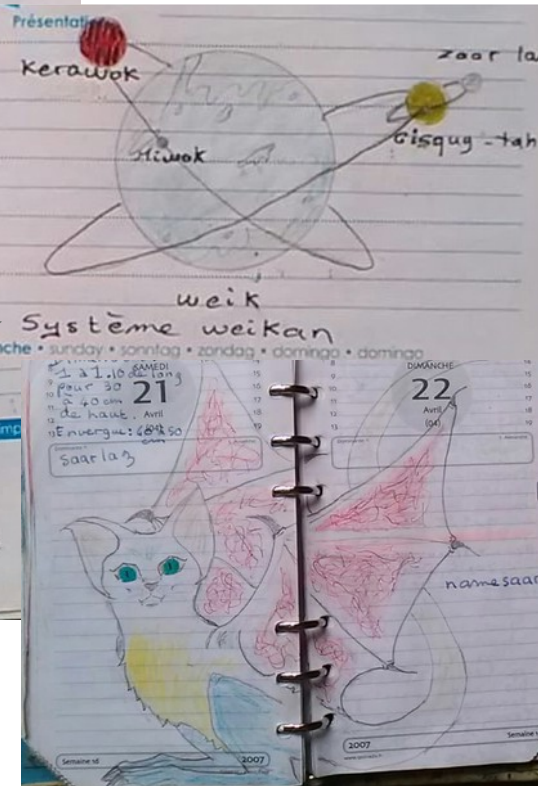 Présentati
Kerawok
zaar la
Hiwok
Gisqug-tah
weik
Système weikan
che • sunday • sonntag • zondag • domingo • domingo
1 à 1.10 de long
pour 30
à 40 cm
de haut.
Envergue:
cm
SAMEDI
21
Avril
saarlaz
DIMANCHE
22
Avril
(04)
namesaar
Semaine 16
2007
2007
Semaine